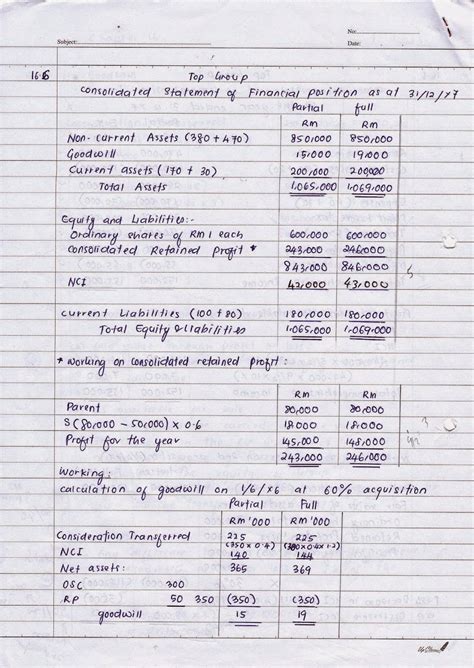 No:
Subject: Date:
16.6 Top Group
Consolidated Statement of Financial position as at 31/12/x7
Partial full
Rm Rm
Non-current Assets (380 + 470) 850,000 850,000
Goodwill 15,000 19,000
Current assets (170 + 30) 200,000 200,000
Total Assets 1,065,000 1,069,000
Equity and Liabilities:-
Ordinary shares of RM 1 each 600,000 600,000
Consolidated Retained Profit * 243,000 246,000
843,000 846,000
NCI 42,000 43,000
Current Liabilities (100 + 80) 180,000 180,000
Total Equity & liabilities 1,065,000 1,069,000
* Working on consolidated retained profit :
Rm Rm
Parent 80,000 80,000
S (80,000 - 50,000) x 0.6 18,000 18,000
Profit for the year 145,000 148,000
243,000 246,000
Working:
Calculation of goodwill on 1/6/x6 at 60% acquisition
Partial Full
RM '000 RM '000
Consideration Transferred 225 225
(350 x 0.4) (350 x 0.4 x 1.2)
NCI 140 144
Net assets: 365 369
OSC 300
RP 50 350 (350) (350)
goodwill 15 19